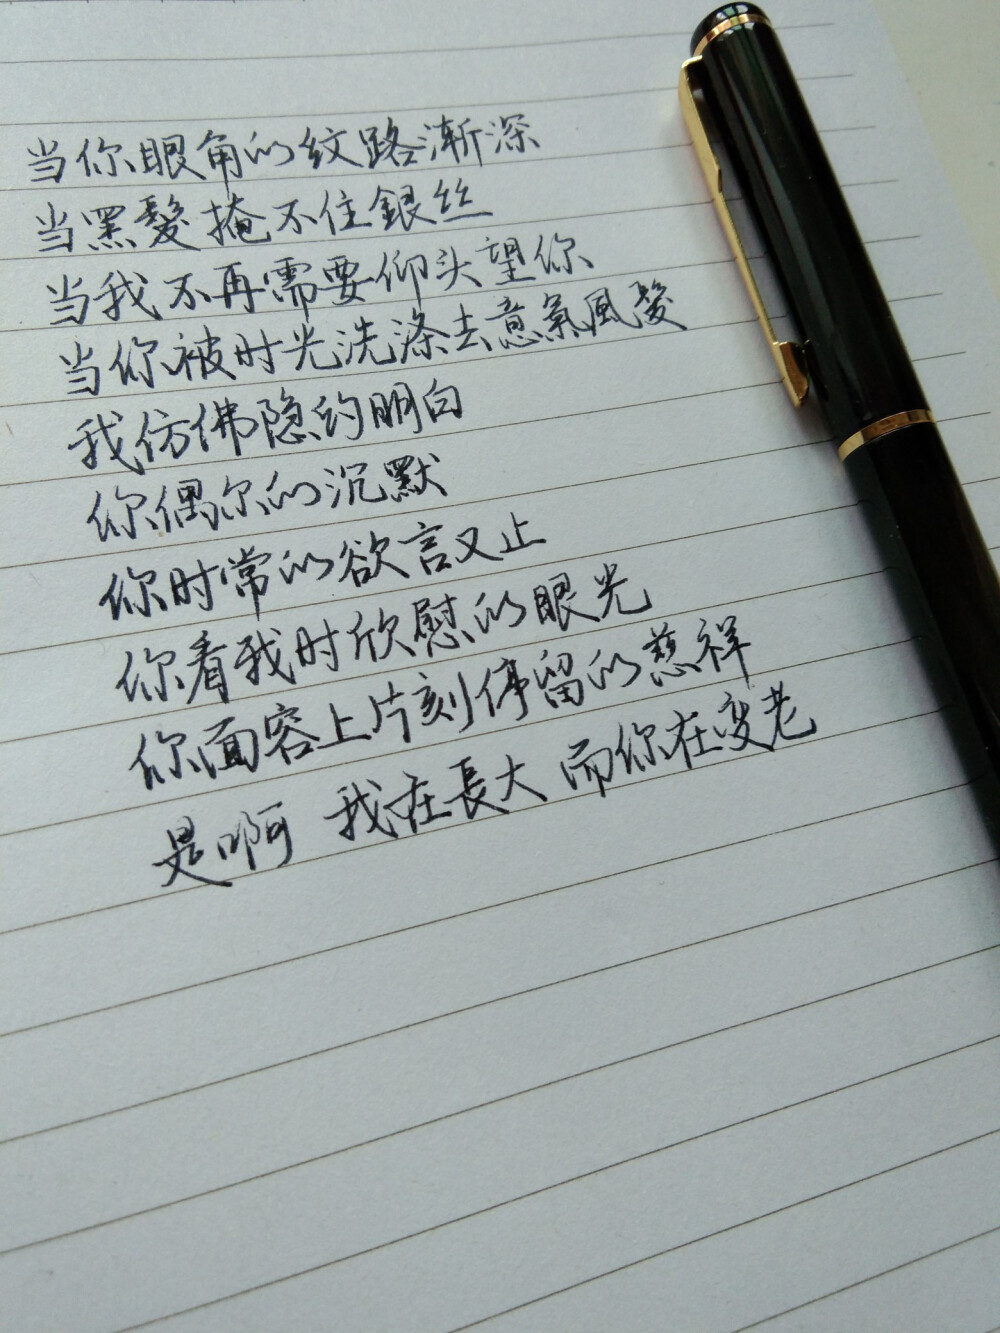 当你眼角的纹路渐深
当黑髮掩不住銀丝
当我不再需要仰头望你
当你被时光洗涤去意氣風髮
我仿佛隐约明白
你偶尔的沉默
你时常的欲言又止
你看我时欣慰的眼光
你面容上片刻停留的慈祥
是啊 我在長大 而你在变老